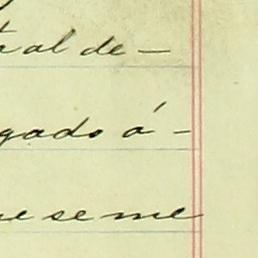 al de —
gado á -
ue se me